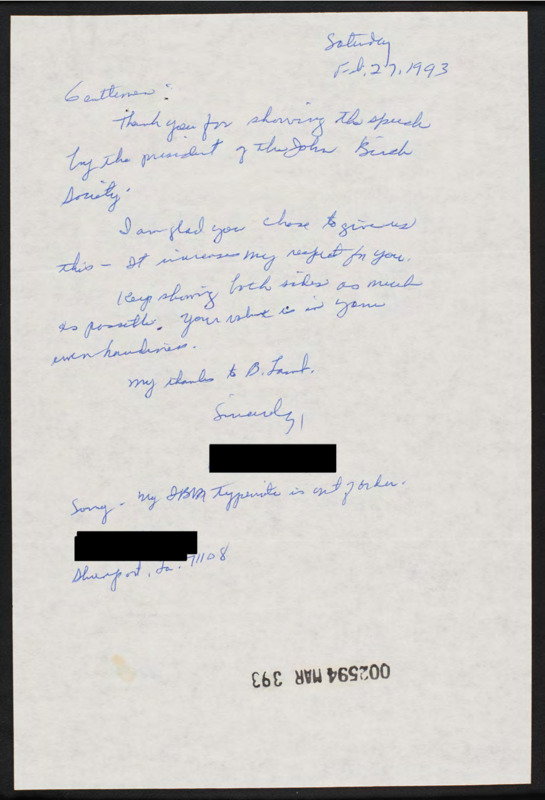 Saturday
Feb. 27, 1993
Gentlemen:
Thank you for showing the speech
by the president of the John Birch
Society.
I am glad you chose to give us
this – It increases my respect for you.
Keep showing both sides as much
as possible. Your value is in your
even handiness.
My thanks to B. Lamb.
Sincerely,
Sorry – my IBM typewriter is out of order.
Shreveport, La. 71108
002594 MAR 393